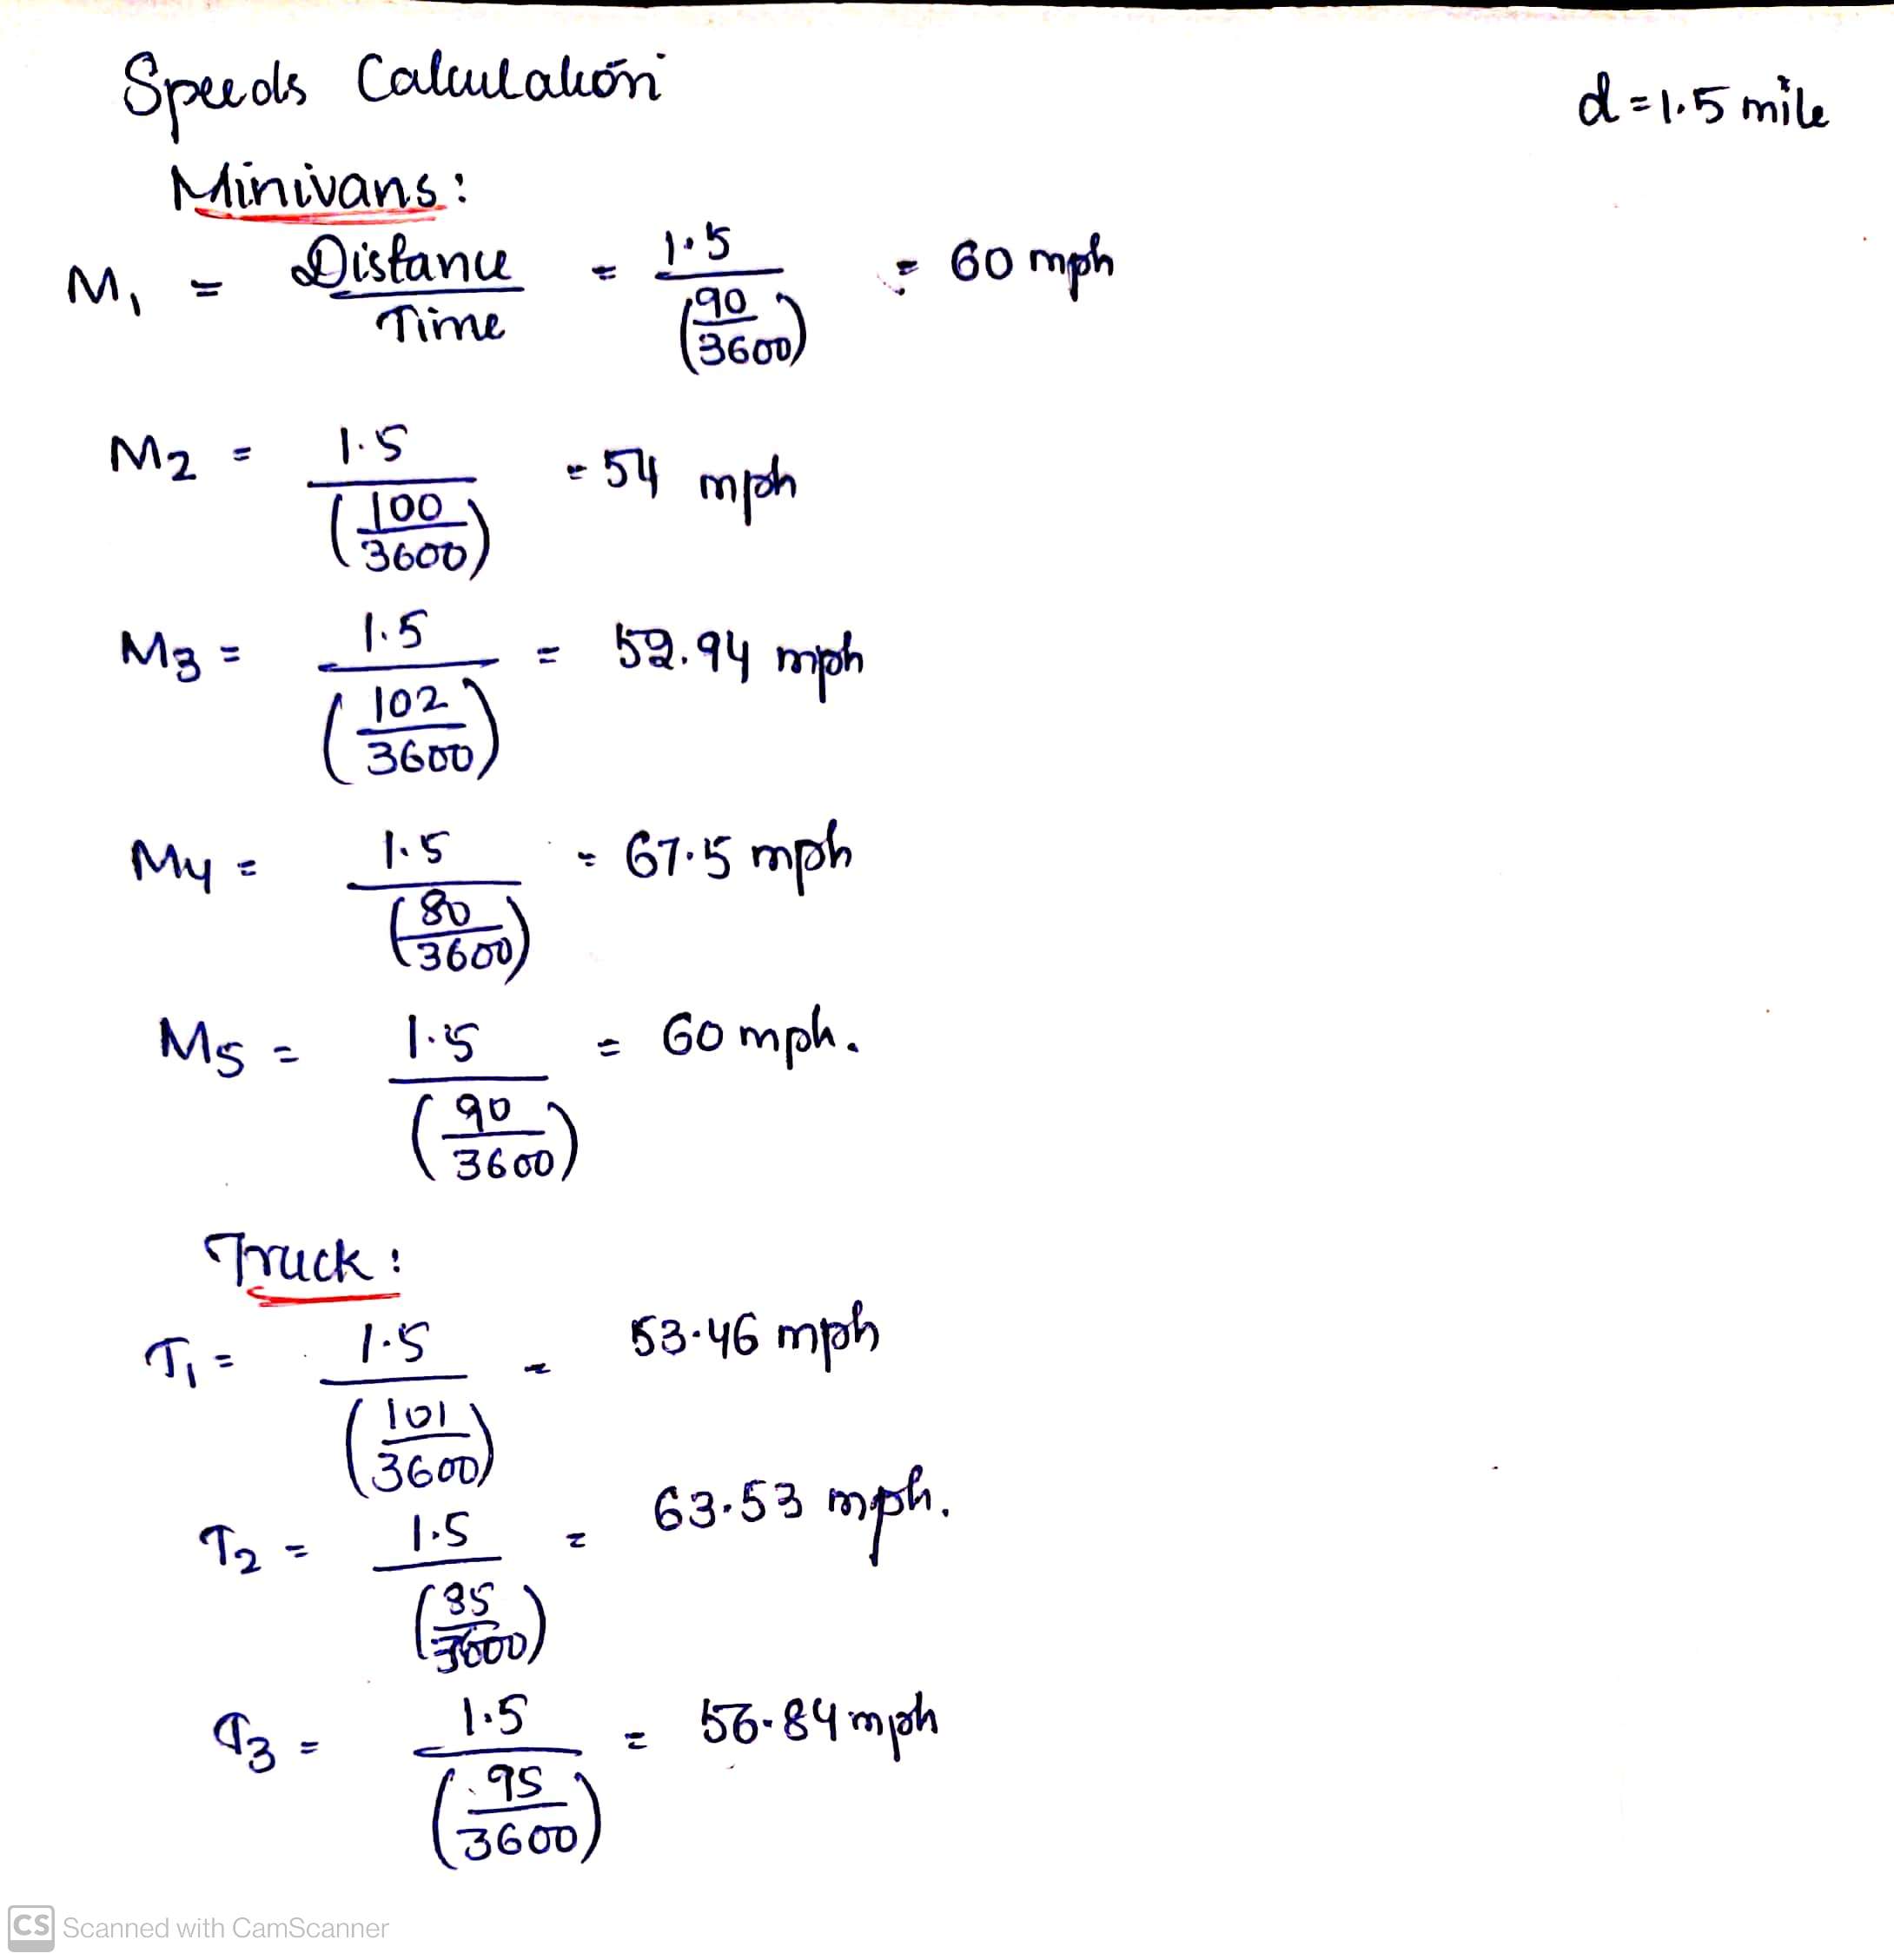 Speeds Calculation
d = 1.5 mile
Minivans:
M1 = Distance / Time = 1.5 / (90/3600) = 60 mph
M2 = 1.5 / (100/3600) = 54 mph
M3 = 1.5 / (102/3600) = 52.94 mph
M4 = 1.5 / (80/3600) = 67.5 mph
M5 = 1.5 / (90/3600) = 60 mph.
Truck:
T1 = 1.5 / (101/3600) = 53.46 mph
T2 = 1.5 / (85/3600) = 63.53 mph.
T3 = 1.5 / (95/3600) = 56.84 mph
CS Scanned with CamScanner